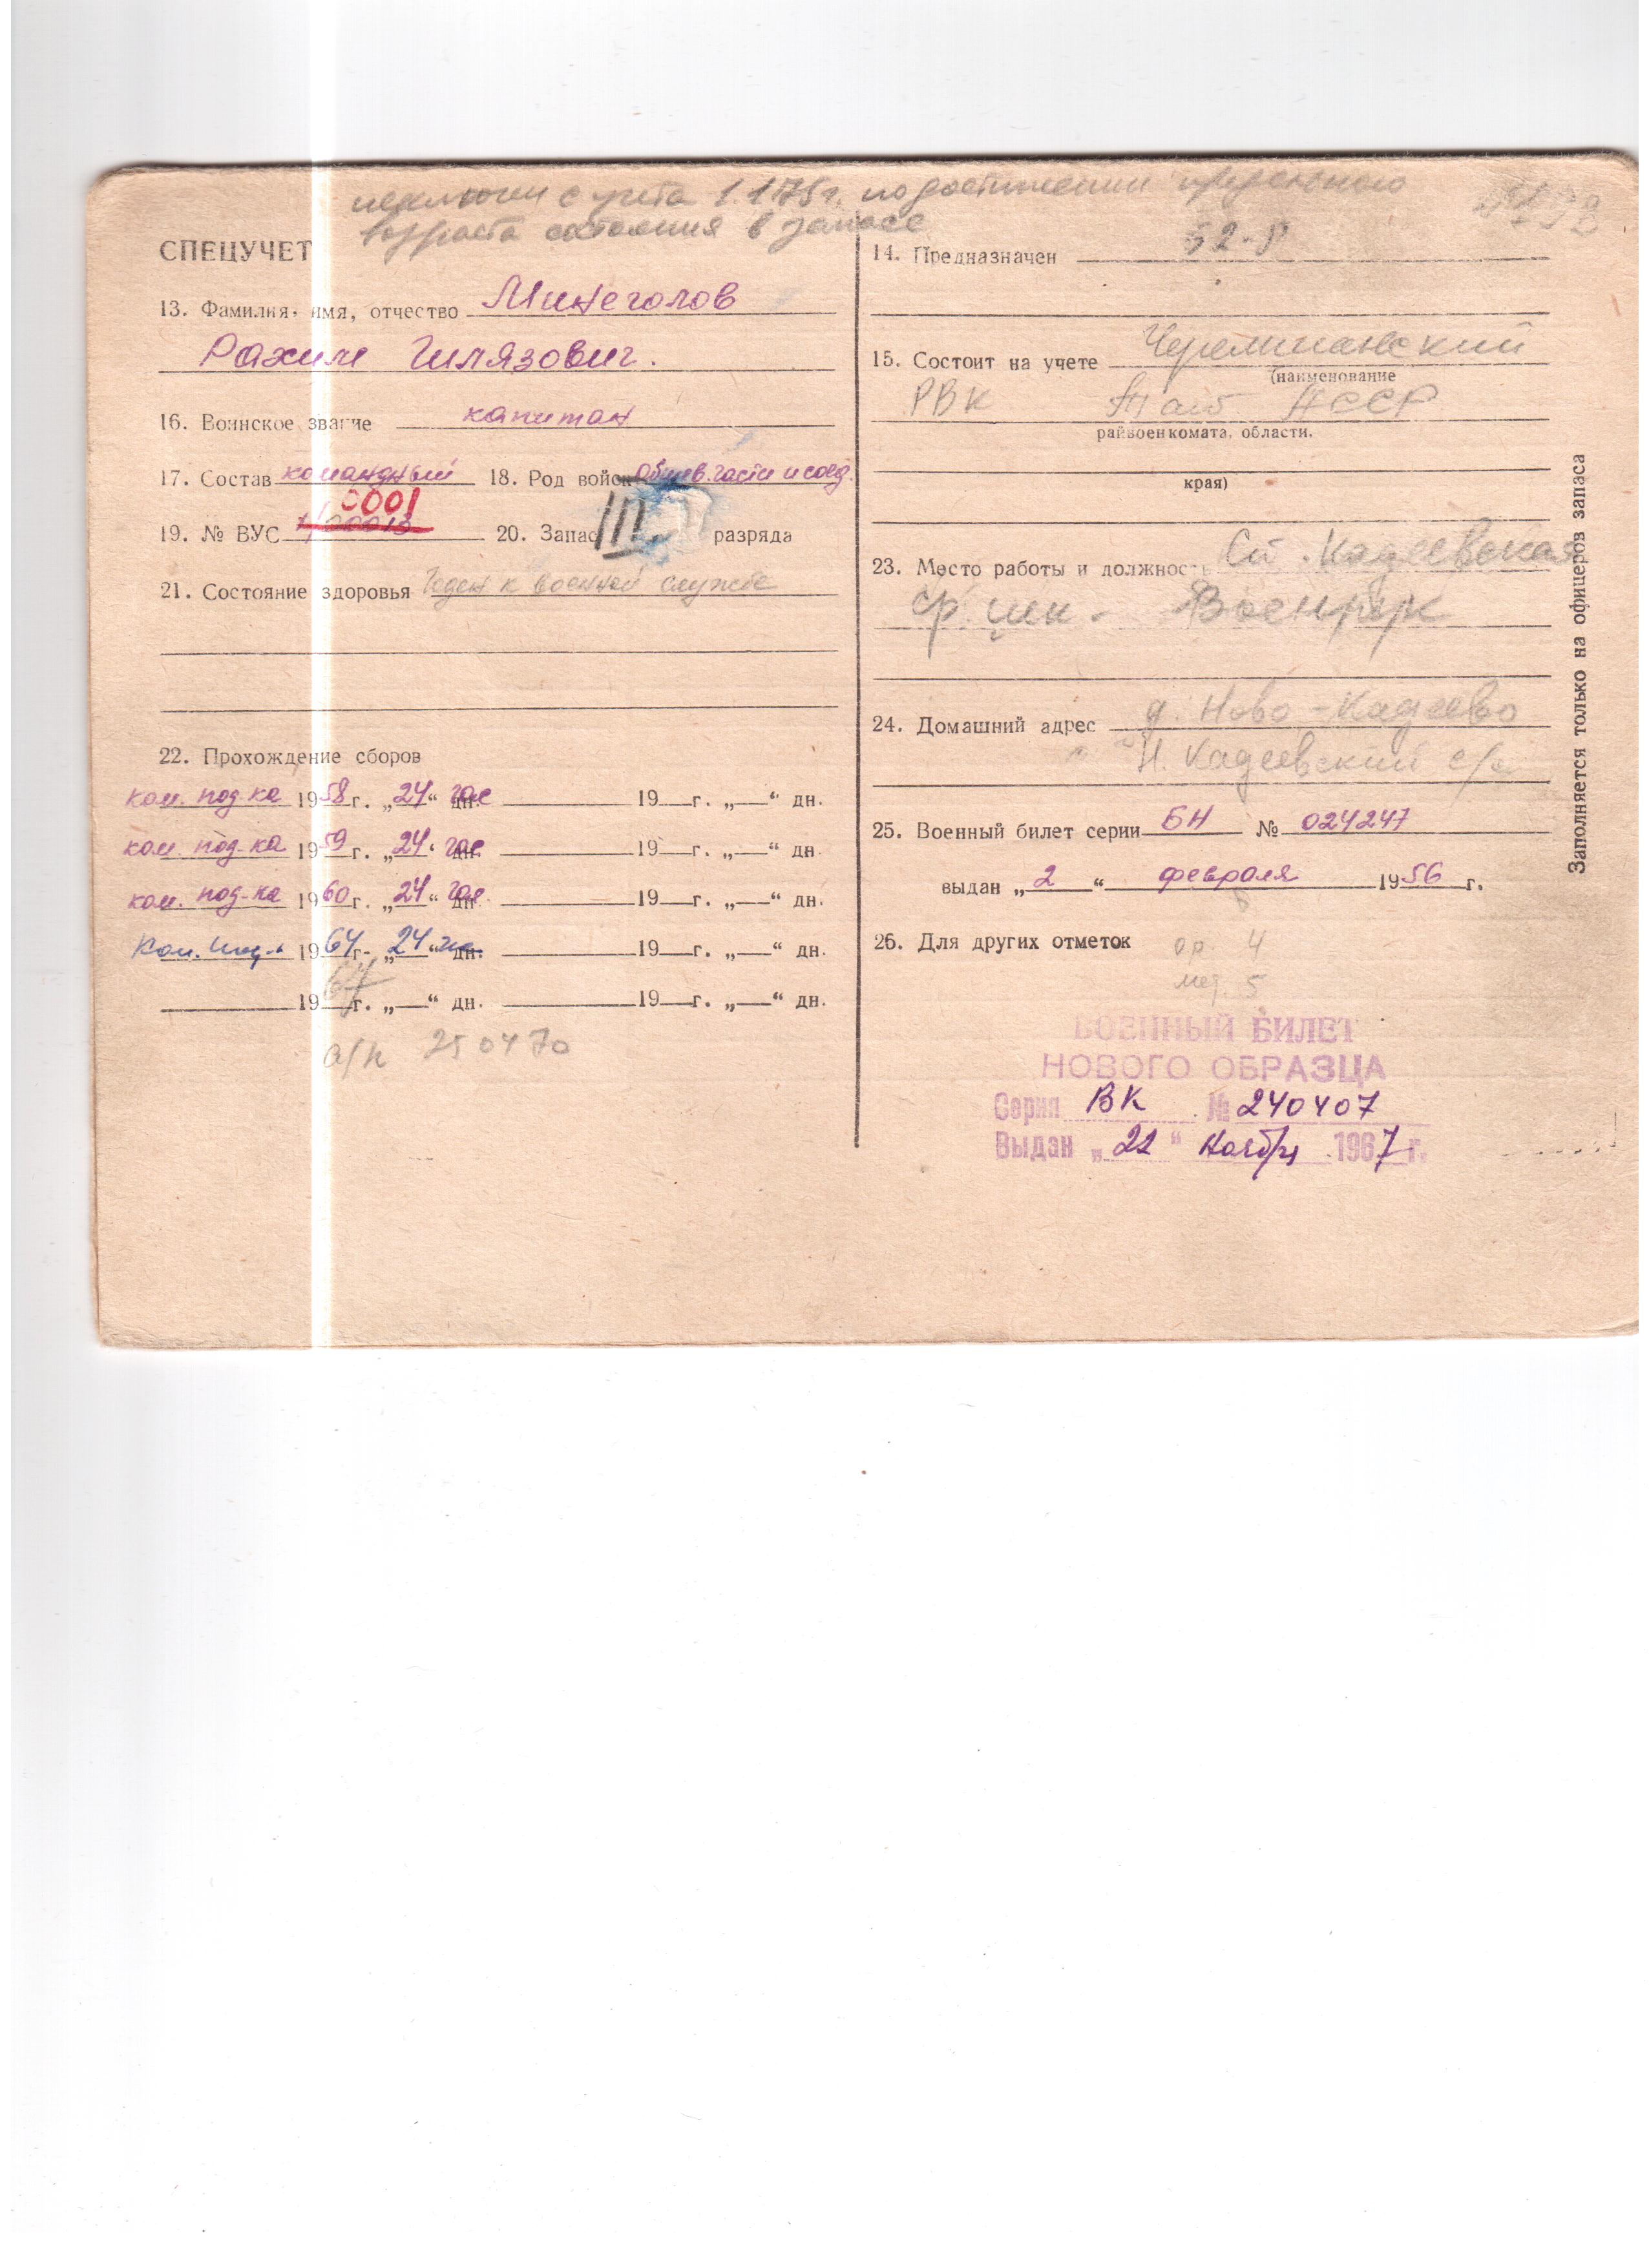 исключен с учета 1.1.75г. по достижении предельного
возраста состояния в запасе
СПЕЦУЧЕТ
13. Фамилия, имя, отчество Минеголов
Рахим Гилязович.
16. Воинское звание капитан
17. Состав командный 18. Род войск общев. части и соед.
0001
19. № ВУС 20. Запас III разряда
21. Состояние здоровья Годен к военной службе
22. Прохождение сборов
ком. под-ка 1958г. „24“ дн. час 19 г. „ “ дн.
ком. под-ка 1959г. „24“ дн. час 19 г. „ “ дн.
ком. под-ка 1960г. „24“ дн. час 19 г. „ “ дн.
Ком. 1964г. „24“ дн. 19 г. „ “ дн.
1967г. „ “ дн. 19 г. „ “ дн.
а/п 250470
14. Предназначен 52-р
15. Состоит на учете Черемшанский
(наименование
РВК Тат АССР
райвоенкомата, области.
края)
23. Место работы и должность Ст. Кадеевская
ср. шк. - Военрук
24. Домашний адрес д. Ново-Кадеево
Н. Кадеевский с/с
25. Военный билет серии БН № 024247
выдан „2“ февраля 1956г.
26. Для других отметок ор. 4
мет. 5
ВОЕННЫЙ БИЛЕТ
НОВОГО ОБРАЗЦА
Серия ВК № 240407
Выдан „22“ Ноября 1967г.
Заполняется только на офицеров запаса